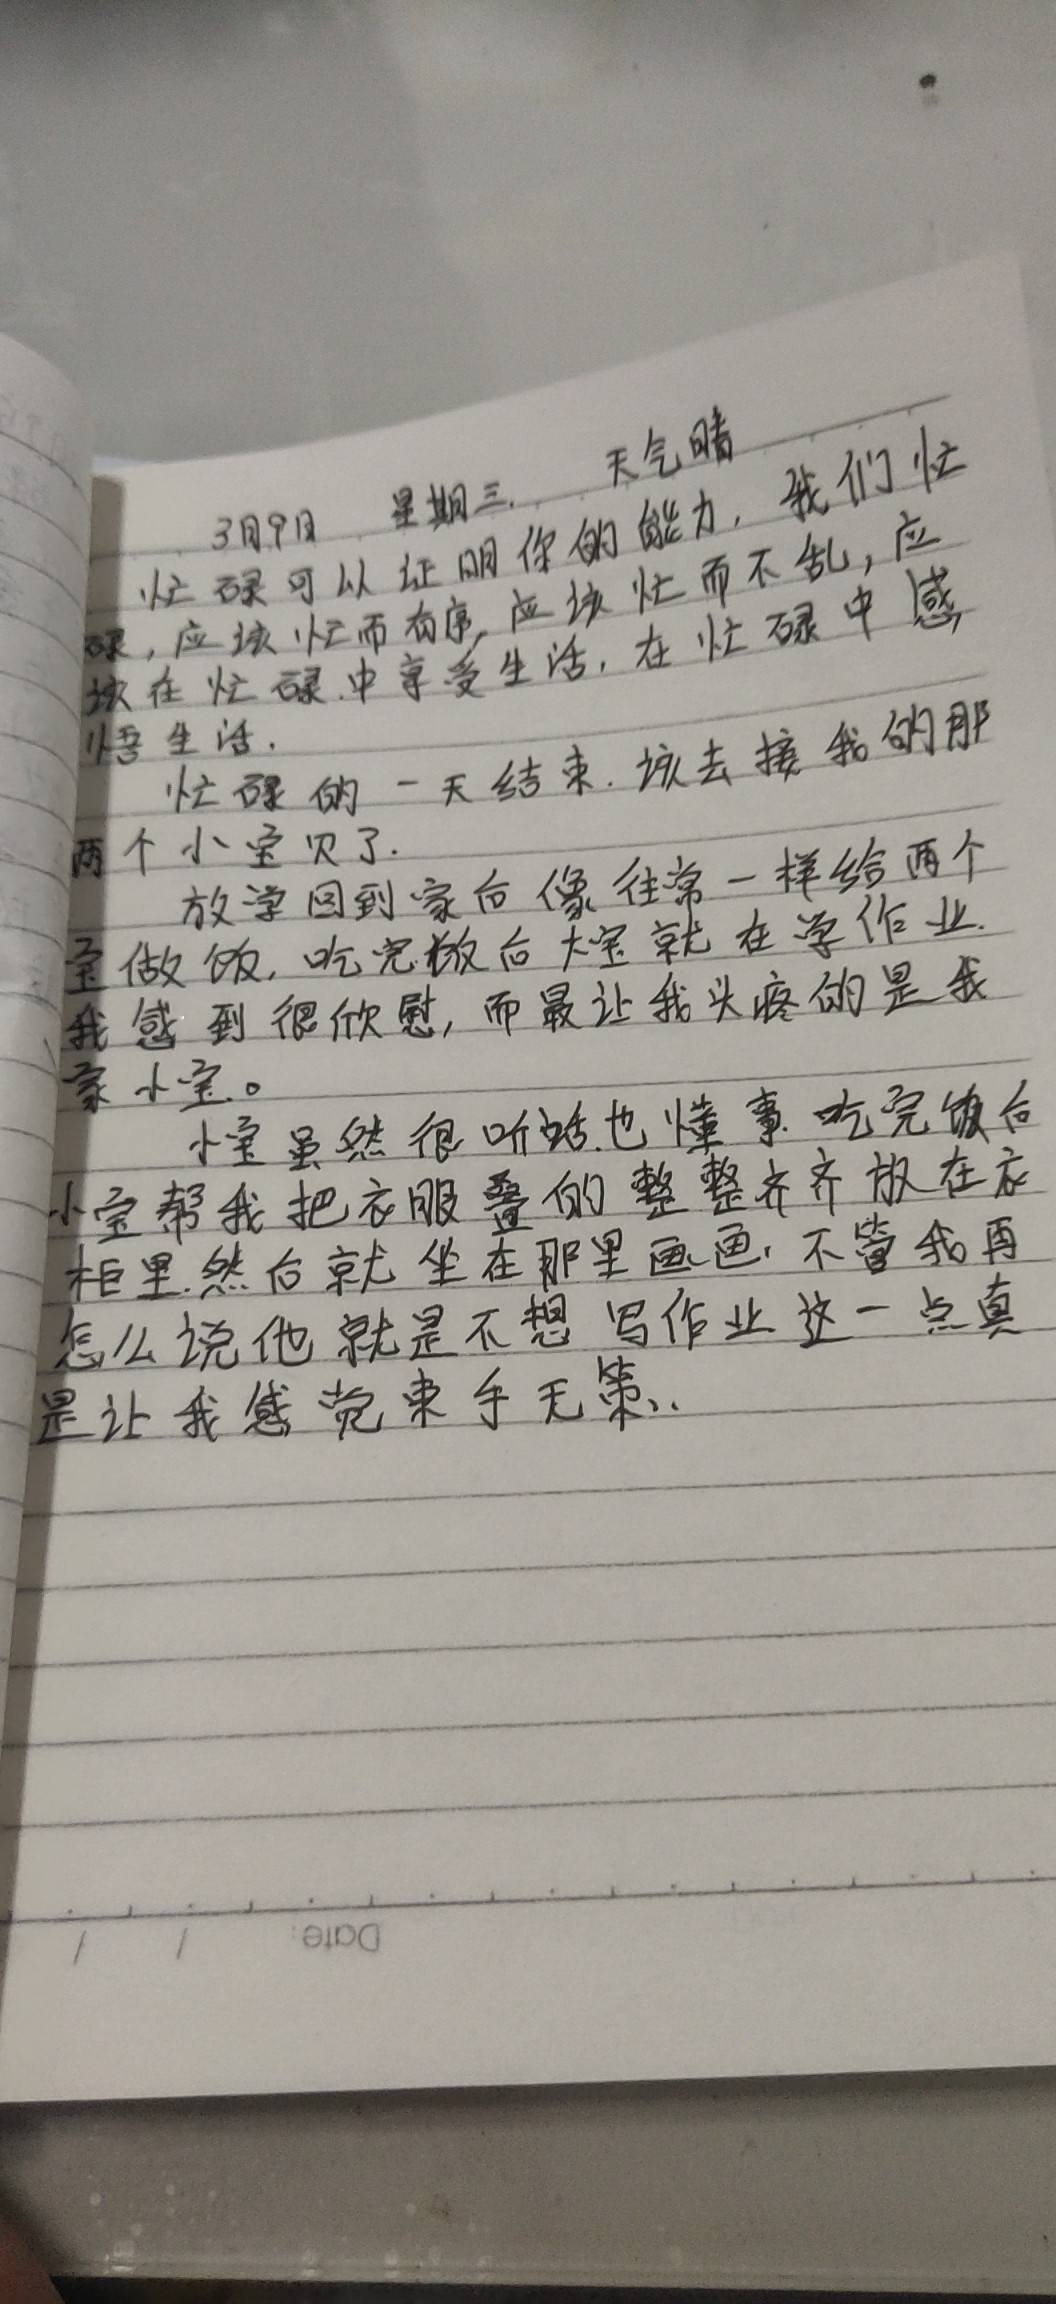 3月9日 星期三. 天气晴
忙碌可以证明你的能力，我们忙
碌，应该忙而有序，应该忙而不乱，应
该在忙碌中享受生活，在忙碌中感
悟生活.
忙碌的一天结束.该去接我的那
两个小宝贝了.
放学回到家后像往常一样给两个
宝做饭，吃完饭后大宝就在学作业.
我感到很欣慰，而最让我头疼的是我
家小宝。
小宝虽然很听话也懂事 吃完饭后
小宝帮我把衣服叠的整整齐齐放在衣
柜里.然后就坐在那里画画，不管我再
怎么说他就是不想写作业这一点真
是让我感觉束手无策..
Date: / /